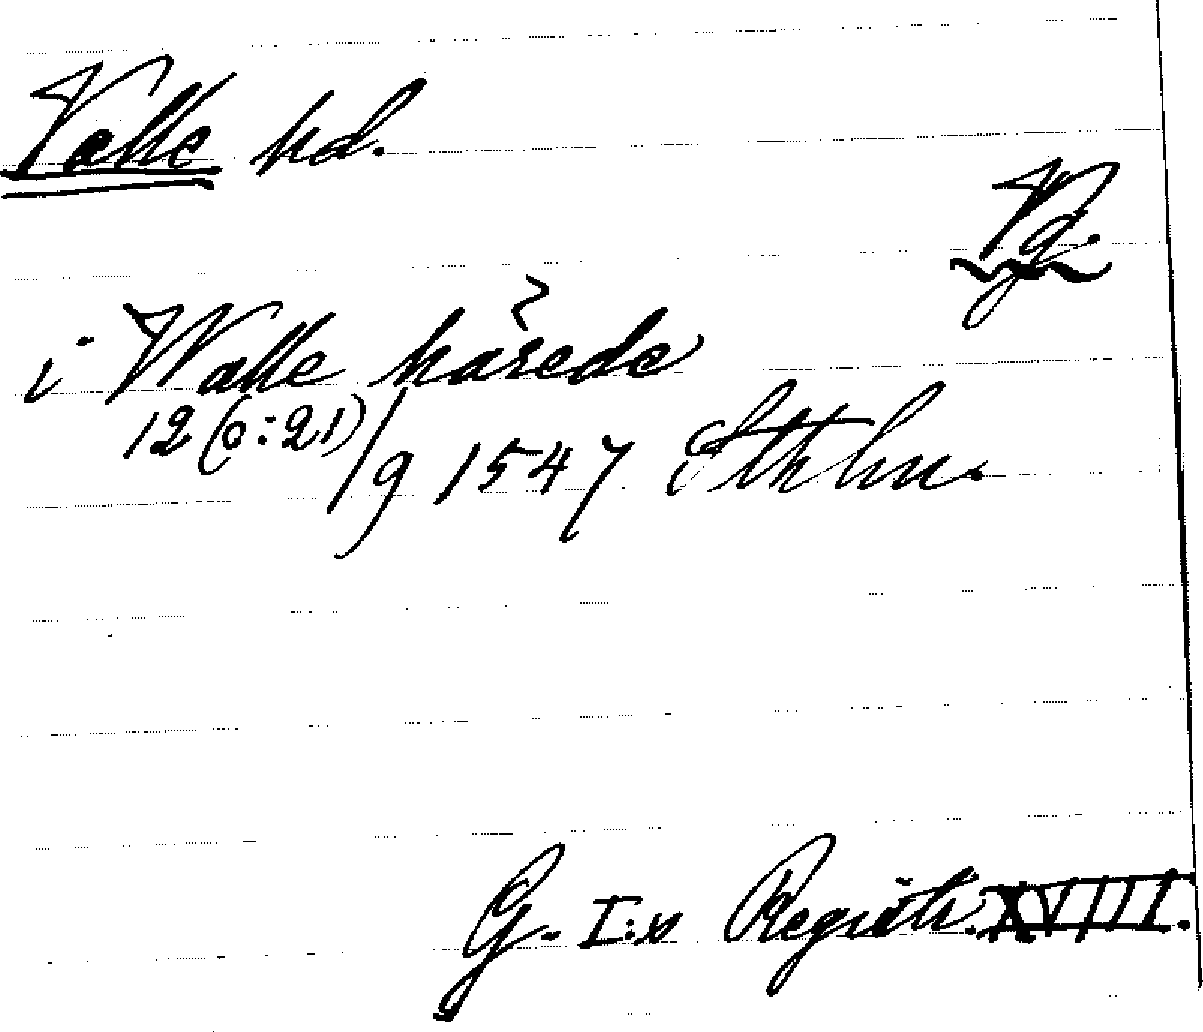 Valle hd.
Vg.
i Walle härede
12 (o: 21)/9 1547 Sthlm.
G. I:s Registr. XVIII.